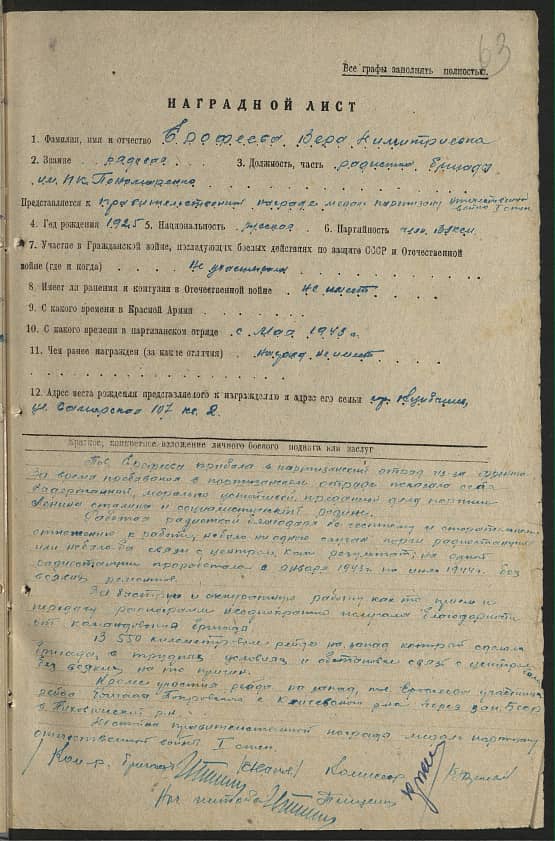 63
Все графы заполнять полностью.
НАГРАДНОЙ ЛИСТ
1. Фамилия, имя и отчество Ерофеева Вера Димитриевна
2. Звание рядовая 3. Должность, часть радистка бригада
им. П.К. Пономаренко
Представляется к правительственной награде медаль партизану отечественной войны I степ.
4. Год рождения 1925 5. Национальность русская 6. Партийность член ВЛКСМ
7. Участие в Гражданской войне, последующих боевых действиях по защите СССР и Отечественной
войне (где и когда) Не участвовала
8. Имеет ли ранения и контузии в Отечественной войне не имеет
9. С какого времени в Красной Армии
10. С какого времени в партизанском отряде с мая 1943 г.
11. Чем ранее награжден (за какие отличия) наград не имеет
12. Адрес места рождения представляемого к награждению и адрес его семьи гор. Куйбышев,
ул. Самарская 107 кв. 2.
Краткое, конкретное изложение личного боевого подвига или заслуг
Тов. Ерофеева прибыла в партизанский отряд из-за фронта.
За время пребывания в партизанском отряде показала себя
выдержанной, морально устойчивой, преданной делу партии
Ленина Сталина и социалистической родине.
Работая радисткой благодаря ее честному и старательному
отношению к работе, не было ни одного случая порчи радиостанции
или не было бы связи с центром, как результат: на одной
радиостанции проработала с января 1943 г. по июль 1944 г. без
всяких ремонтов.
За быструю и аккуратную работу как по приему и
передачу радиограмм неоднократно получала благодарности
от командования бригады
В 550 километровом рейде на запад который сделала
бригада, в трудных условиях и обстановке связь с центром была
без всяких на то причин.
Кроме участия рейда на запад, тов. Ерофеева участница
рейда через зап. БССР
в р-н.
Достойна правительственной награды медаль партизану
отечественной войны I степ.
Ком-р. бригады Комиссар
Нач штаба